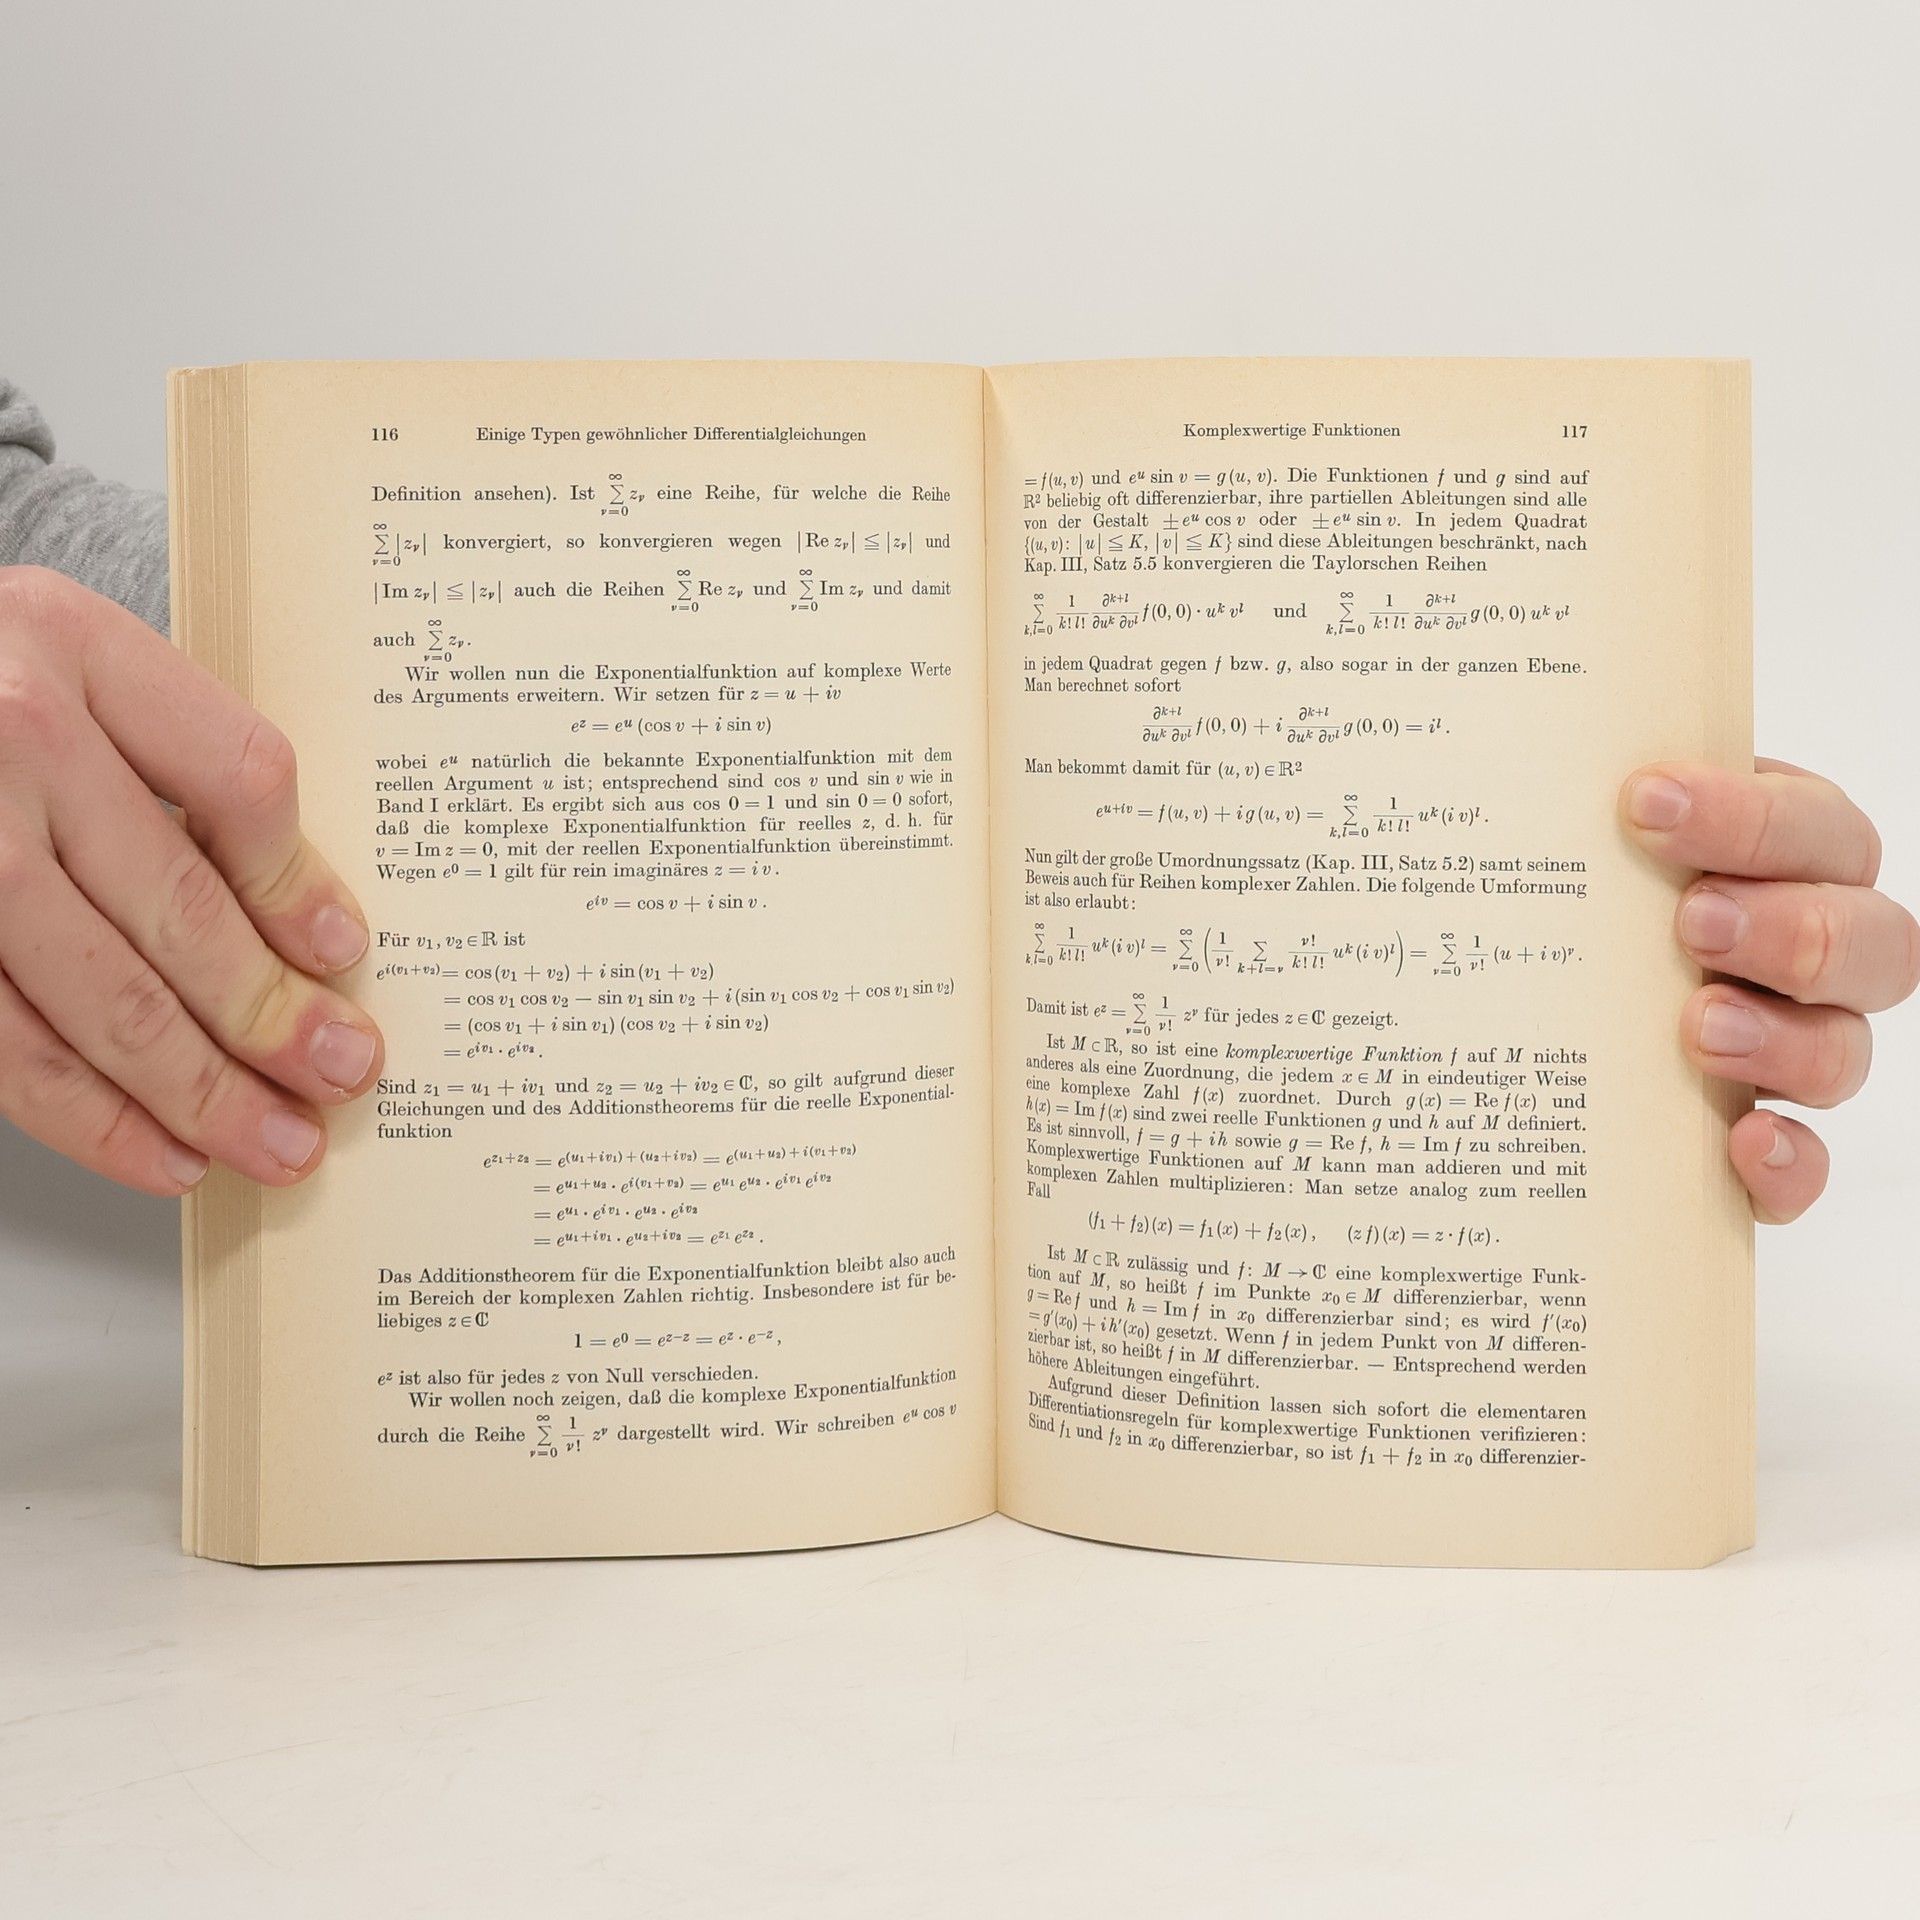 116 Einige Typen gewöhnlicher Differentialgleichungen
Definition ansehen). Ist ∑_{ν=0}^{∞} z_ν eine Reihe, für welche die Reihe
∑_{ν=0}^{∞} |z_ν| konvergiert, so konvergieren wegen |Re z_ν| ≦ |z_ν| und
|Im z_ν| ≦ |z_ν| auch die Reihen ∑_{ν=0}^{∞} Re z_ν und ∑_{ν=0}^{∞} Im z_ν und damit
auch ∑_{ν=0}^{∞} z_ν.
Wir wollen nun die Exponentialfunktion auf komplexe Werte
des Arguments erweitern. Wir setzen für z = u + iv
e^z = e^u (cos v + i sin v)
wobei e^u natürlich die bekannte Exponentialfunktion mit dem
reellen Argument u ist; entsprechend sind cos v und sin v wie in
Band I erklärt. Es ergibt sich aus cos 0 = 1 und sin 0 = 0 sofort,
daß die komplexe Exponentialfunktion für reelles z, d. h. für
v = Im z = 0, mit der reellen Exponentialfunktion übereinstimmt.
Wegen e^0 = 1 gilt für rein imaginäres z = i v.
e^{iv} = cos v + i sin v.
Für v_1, v_2 ∈ ℝ ist
e^{i(v_1+v_2)} = cos (v_1 + v_2) + i sin (v_1 + v_2)
= cos v_1 cos v_2 − sin v_1 sin v_2 + i (sin v_1 cos v_2 + cos v_1 sin v_2)
= (cos v_1 + i sin v_1) (cos v_2 + i sin v_2)
= e^{iv_1} · e^{iv_2}.
Sind z_1 = u_1 + iv_1 und z_2 = u_2 + iv_2 ∈ ℂ, so gilt aufgrund dieser
Gleichungen und des Additionstheorems für die reelle Exponential-
funktion
e^{z_1+z_2} = e^{(u_1+iv_1)+(u_2+iv_2)} = e^{(u_1+u_2)+i(v_1+v_2)}
= e^{u_1+u_2} · e^{i(v_1+v_2)} = e^{u_1} e^{u_2} · e^{iv_1} e^{iv_2}
= e^{u_1} · e^{iv_1} · e^{u_2} · e^{iv_2}
= e^{u_1+iv_1} · e^{u_2+iv_2} = e^{z_1} e^{z_2}.
Das Additionstheorem für die Exponentialfunktion bleibt also auch
im Bereich der komplexen Zahlen richtig. Insbesondere ist für be-
liebiges z ∈ ℂ
1 = e^0 = e^{z−z} = e^z · e^{−z},
e^z ist also für jedes z von Null verschieden.
Wir wollen noch zeigen, daß die komplexe Exponentialfunktion
durch die Reihe ∑_{ν=0}^{∞} 1/ν! z^ν dargestellt wird. Wir schreiben e^u cos v
Komplexwertige Funktionen 117
= f(u, v) und e^u sin v = g(u, v). Die Funktionen f und g sind auf
ℝ² beliebig oft differenzierbar, ihre partiellen Ableitungen sind alle
von der Gestalt ±e^u cos v oder ±e^u sin v. In jedem Quadrat
{(u, v): |u| ≦ K, |v| ≦ K} sind diese Ableitungen beschränkt, nach
Kap. III, Satz 5.5 konvergieren die Taylorschen Reihen
∑_{k,l=0}^{∞} 1/(k! l!) ∂^{k+l}/(∂u^k ∂v^l) f(0, 0) · u^k v^l und ∑_{k,l=0}^{∞} 1/(k! l!) ∂^{k+l}/(∂u^k ∂v^l) g(0, 0) u^k v^l
in jedem Quadrat gegen f bzw. g, also sogar in der ganzen Ebene.
Man berechnet sofort
∂^{k+l}/(∂u^k ∂v^l) f(0, 0) + i ∂^{k+l}/(∂u^k ∂v^l) g(0, 0) = i^l.
Man bekommt damit für (u, v) ∈ ℝ²
e^{u+iv} = f(u, v) + i g(u, v) = ∑_{k,l=0}^{∞} 1/(k! l!) u^k (i v)^l.
Nun gilt der große Umordnungssatz (Kap. III, Satz 5.2) samt seinem
Beweis auch für Reihen komplexer Zahlen. Die folgende Umformung
ist also erlaubt:
∑_{k,l=0}^{∞} 1/(k! l!) u^k (i v)^l = ∑_{ν=0}^{∞} (1/ν! ∑_{k+l=ν} ν!/(k! l!) u^k (i v)^l) = ∑_{ν=0}^{∞} 1/ν! (u + i v)^ν.
Damit ist e^z = ∑_{ν=0}^{∞} 1/ν! z^ν für jedes z ∈ ℂ gezeigt.
Ist M ⊂ ℝ, so ist eine komplexwertige Funktion f auf M nichts
anderes als eine Zuordnung, die jedem x ∈ M in eindeutiger Weise
eine komplexe Zahl f(x) zuordnet. Durch g(x) = Re f(x) und
h(x) = Im f(x) sind zwei reelle Funktionen g und h auf M definiert.
Es ist sinnvoll, f = g + ih sowie g = Re f, h = Im f zu schreiben.
Komplexwertige Funktionen auf M kann man addieren und mit
komplexen Zahlen multiplizieren: Man setze analog zum reellen
Fall
(f_1 + f_2)(x) = f_1(x) + f_2(x), (z f)(x) = z · f(x).
Ist M ⊂ ℝ zulässig und f: M → ℂ eine komplexwertige Funk-
tion auf M, so heißt f im Punkte x_0 ∈ M differenzierbar, wenn
g = Re f und h = Im f in x_0 differenzierbar sind; es wird f′(x_0)
= g′(x_0) + i h′(x_0) gesetzt. Wenn f in jedem Punkt von M differen-
zierbar ist, so heißt f in M differenzierbar. — Entsprechend werden
höhere Ableitungen eingeführt.
Aufgrund dieser Definition lassen sich sofort die elementaren
Differentiationsregeln für komplexwertige Funktionen verifizieren:
Sind f_1 und f_2 in x_0 differenzierbar, so ist f_1 + f_2 in x_0 differenzier-